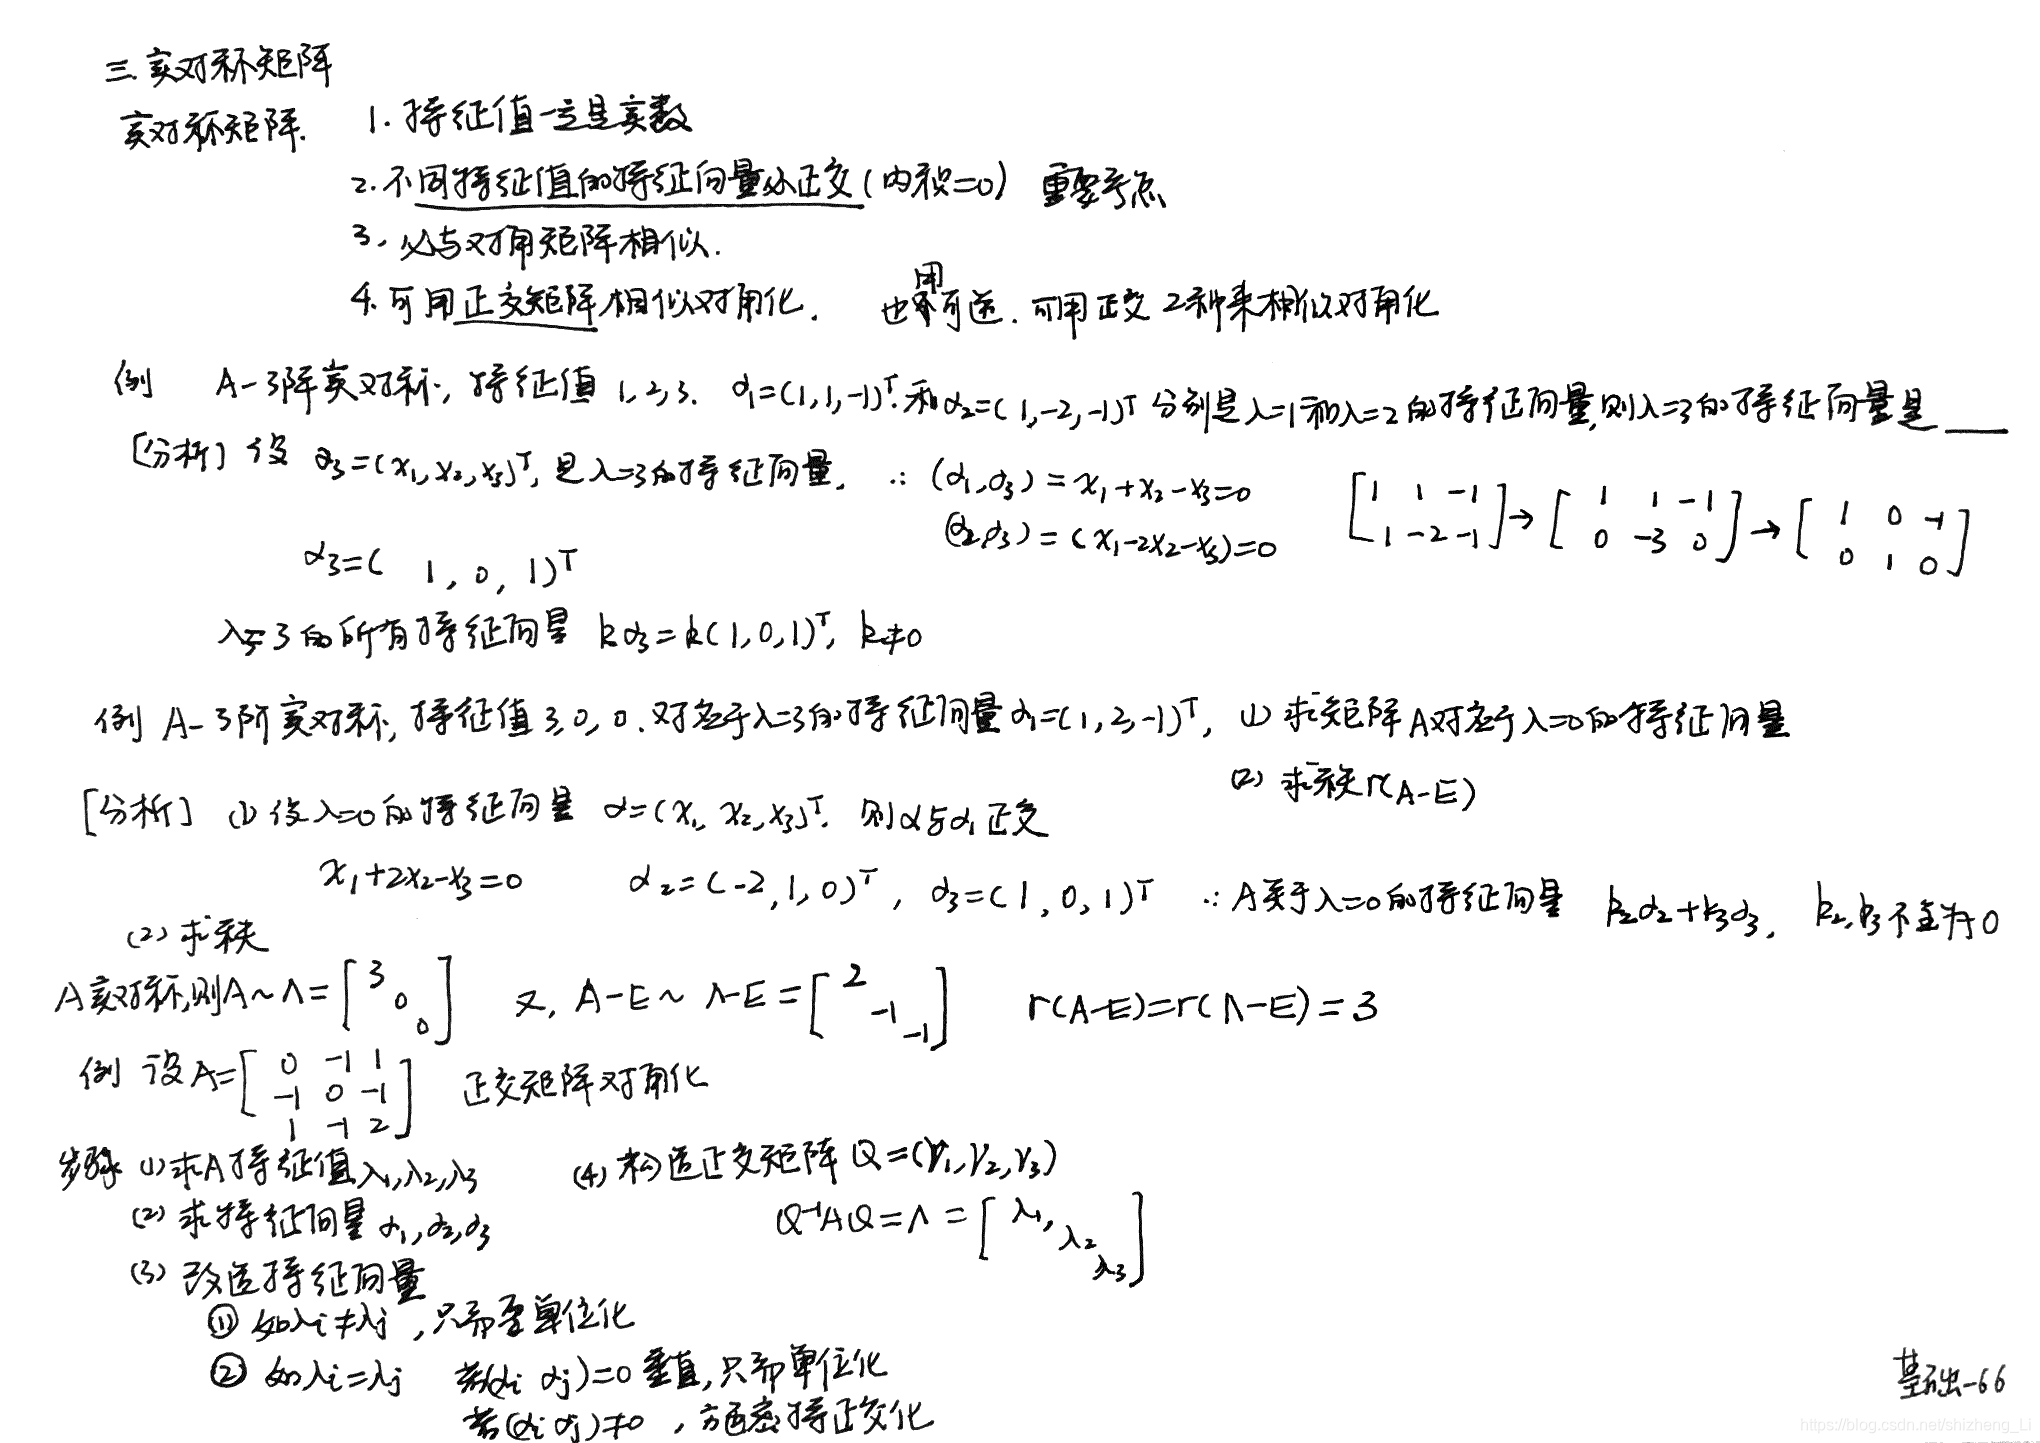 三.实对称矩阵
实对称矩阵. 1.特征值一定是实数
2.不同特征值的特征向量必正交(内积=0) 重要考点
3.必与对角矩阵相似.
4.可用正交矩阵相似对角化. 也可用可逆.可用正交 2种来相似对角化
例 A-3阵实对称, 特征值 1,2,3. α1=(1,1,-1)^T.和α2=(1,-2,-1)^T 分别是λ=1和λ=2的特征向量,则λ=3的特征向量是___
[分析] 设 α3=(x1,x2,x3)^T, 是λ=3的特征向量. ∴ (α1,α3)=x1+x2-x3=0 [1 1 -1; 1 -2 -1] → [1 1 -1; 0 -3 0] → [1 0 -1; 0 1 0]
(α2,α3)=(x1-2x2-x3)=0
α3=( 1, 0, 1)^T
λ=3的所有特征向量 kα3=k(1,0,1)^T, k≠0
例 A-3阶实对称, 特征值3,0,0.对应于λ=3的特征向量α1=(1,2,-1)^T, (1) 求矩阵A对应于λ=0的特征向量
(2) 求秩r(A-E)
[分析] (1) 设λ=0的特征向量 α=(x1,x2,x3)^T. 则α与α1正交
x1+2x2-x3=0 α2=(-2,1,0)^T, α3=(1,0,1)^T ∴A关于λ=0的特征向量 k2α2+k3α3, k2,k3不全为0
(2) 求秩
A实对称,则A~Λ=[3 0 0] 又, A-E~Λ-E=[2 -1 -1] r(A-E)=r(Λ-E)=3
例 设A=[0 -1 1; -1 0 -1; 1 -1 2] 正交矩阵对角化
步骤 (1)求A特征值λ1,λ2,λ3 (4)构造正交矩阵Q=(γ1,γ2,γ3)
(2) 求特征向量 α1,α2,α3 Q^-1AQ=Λ=[λ1, λ2 λ3]
(3) 改造特征向量
① 如λi≠λj ,只需要单位化
② 如λi=λj 若(αi αj)=0 垂直,只需单位化
若(αi αj)≠0 ,施密特正交化
基础-66
https://blog.csdn.net/shizheng_Li